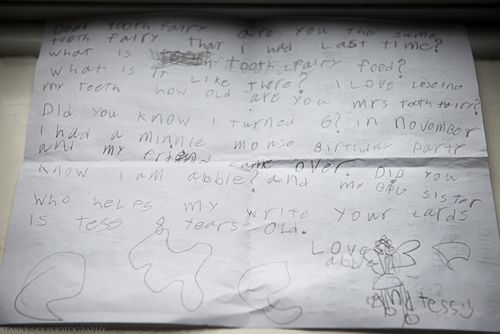 Dear tooth fairy are you the same
tooth fairy that I had Last time?
what is tooth fairy food?
what is it Like there? I Love loseing
my teeth how old are you mrs tooth fairy?
Did you know I turned 6? in November
I had a minnie mouse Birthday Party
and my friend came over. Did you
know I am abbie? and my BIG sister
who helps my write your cards
is tess 8 years old.
Love
abbie
And tess
STARRY SKY PHOTOGRAPHY